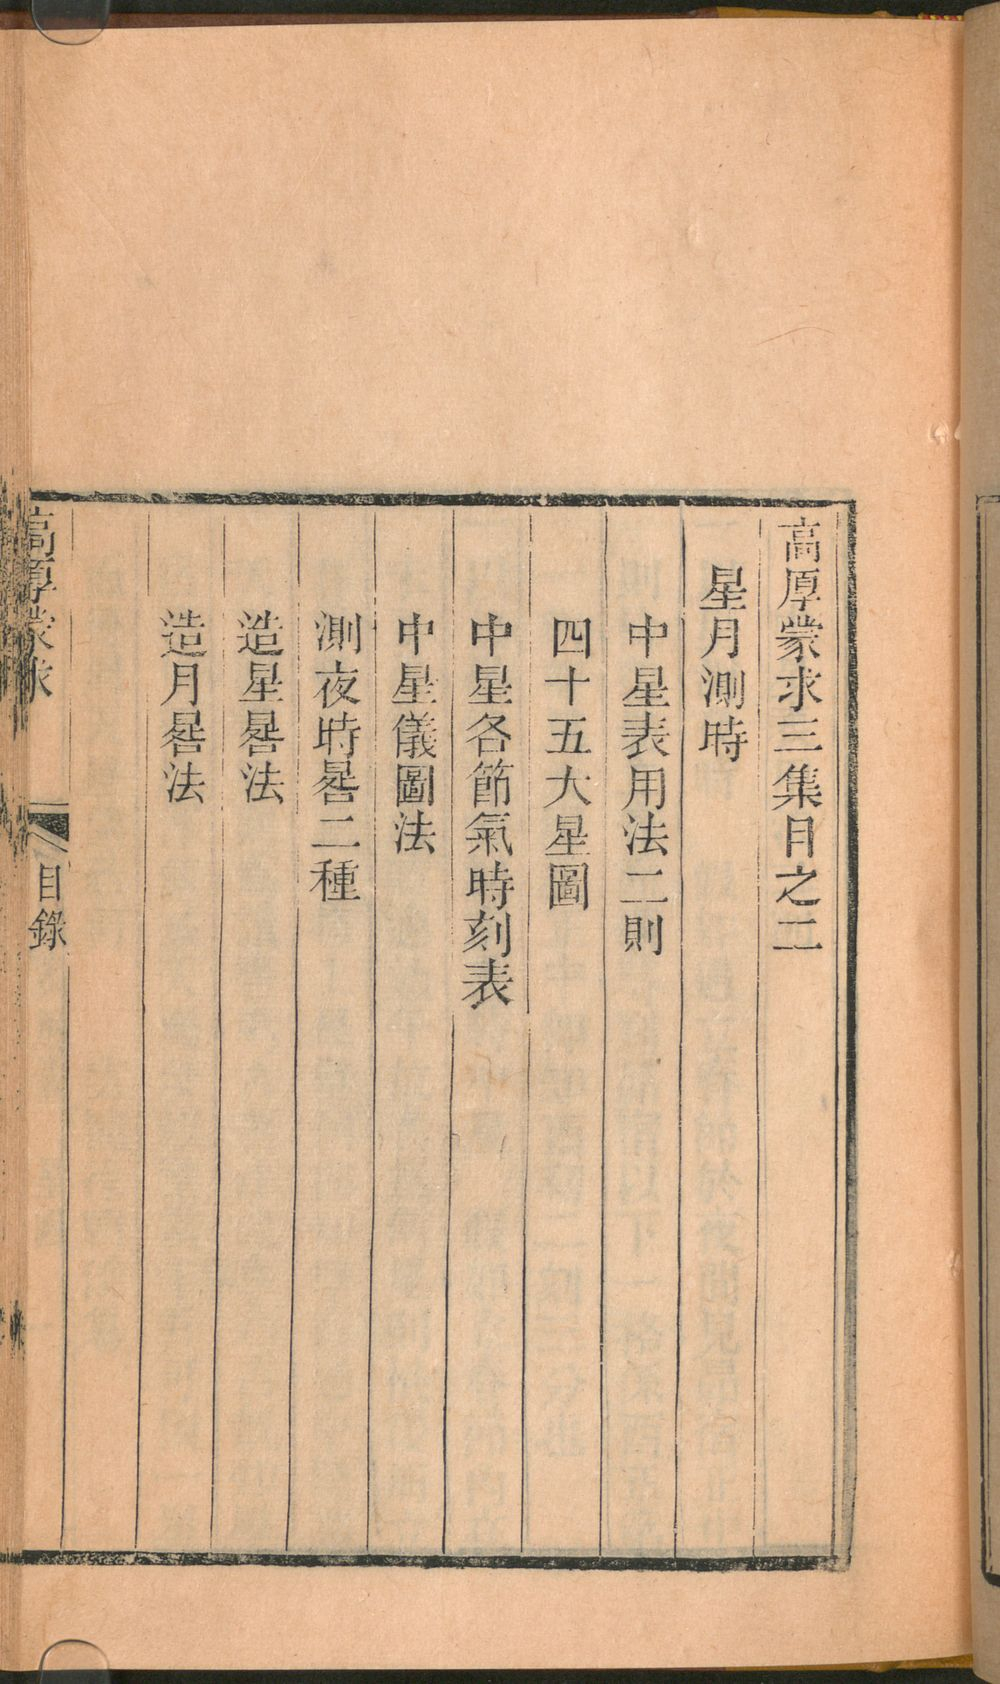 高厚蒙求三集目之二
星月測時
中星表用法二則
四十五大星圖
中星各節氣時刻表
中星儀圖法
測夜時晷二種
造星晷法
造月晷法
高厚蒙求 目錄